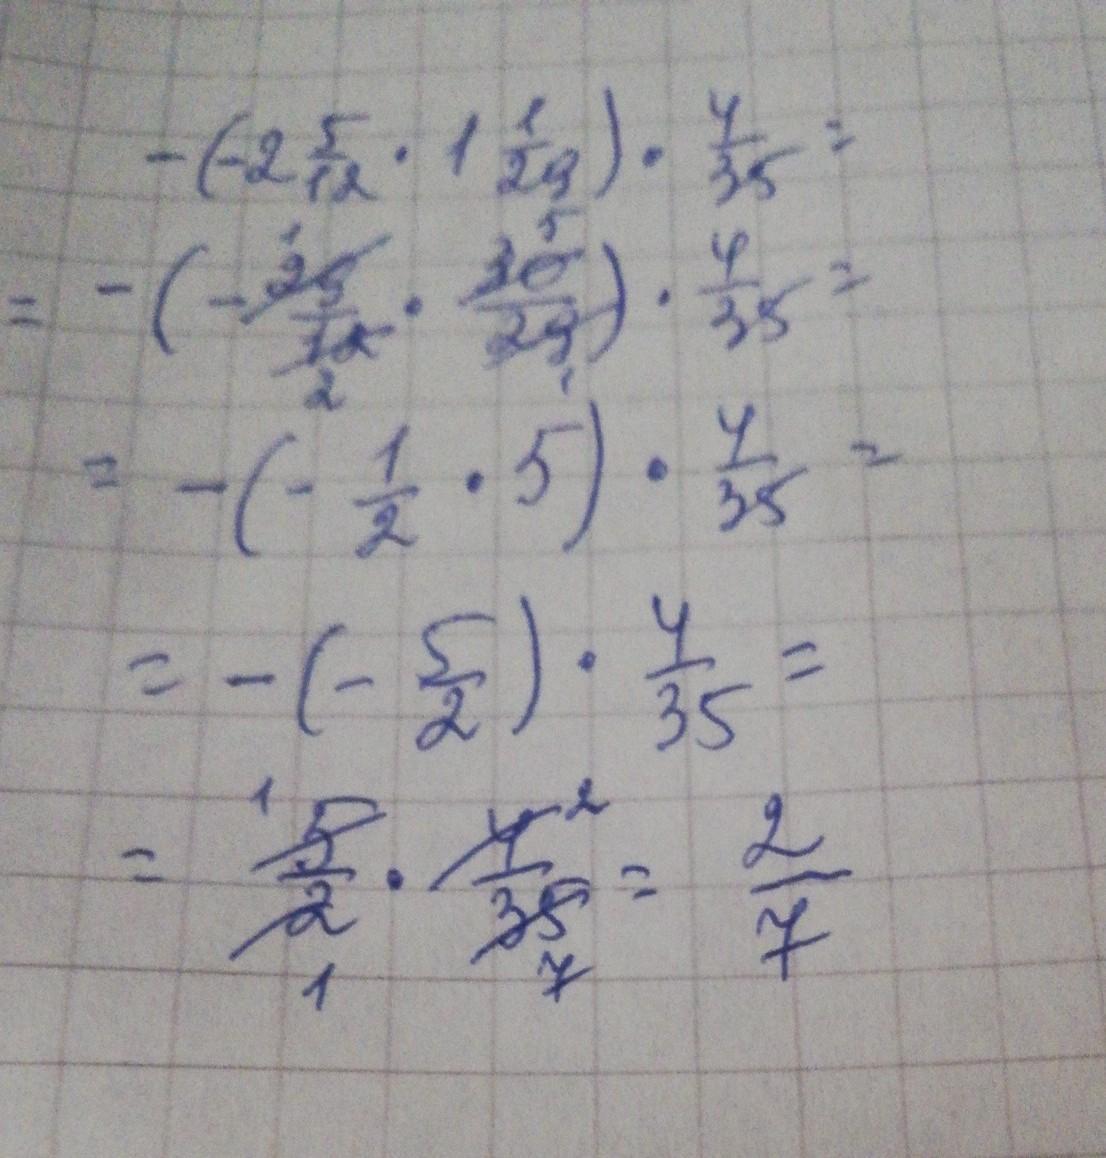 -(-2 5/12 · 1 1/29) · 4/35 =
= -(- 29/12 · 30/29) · 4/35 =
1 2 5 1
= -(- 1/2 · 5) · 4/35 =
= -(- 5/2) · 4/35 =
= 5/2 · 4/35 = 2/7
1 1 2 7